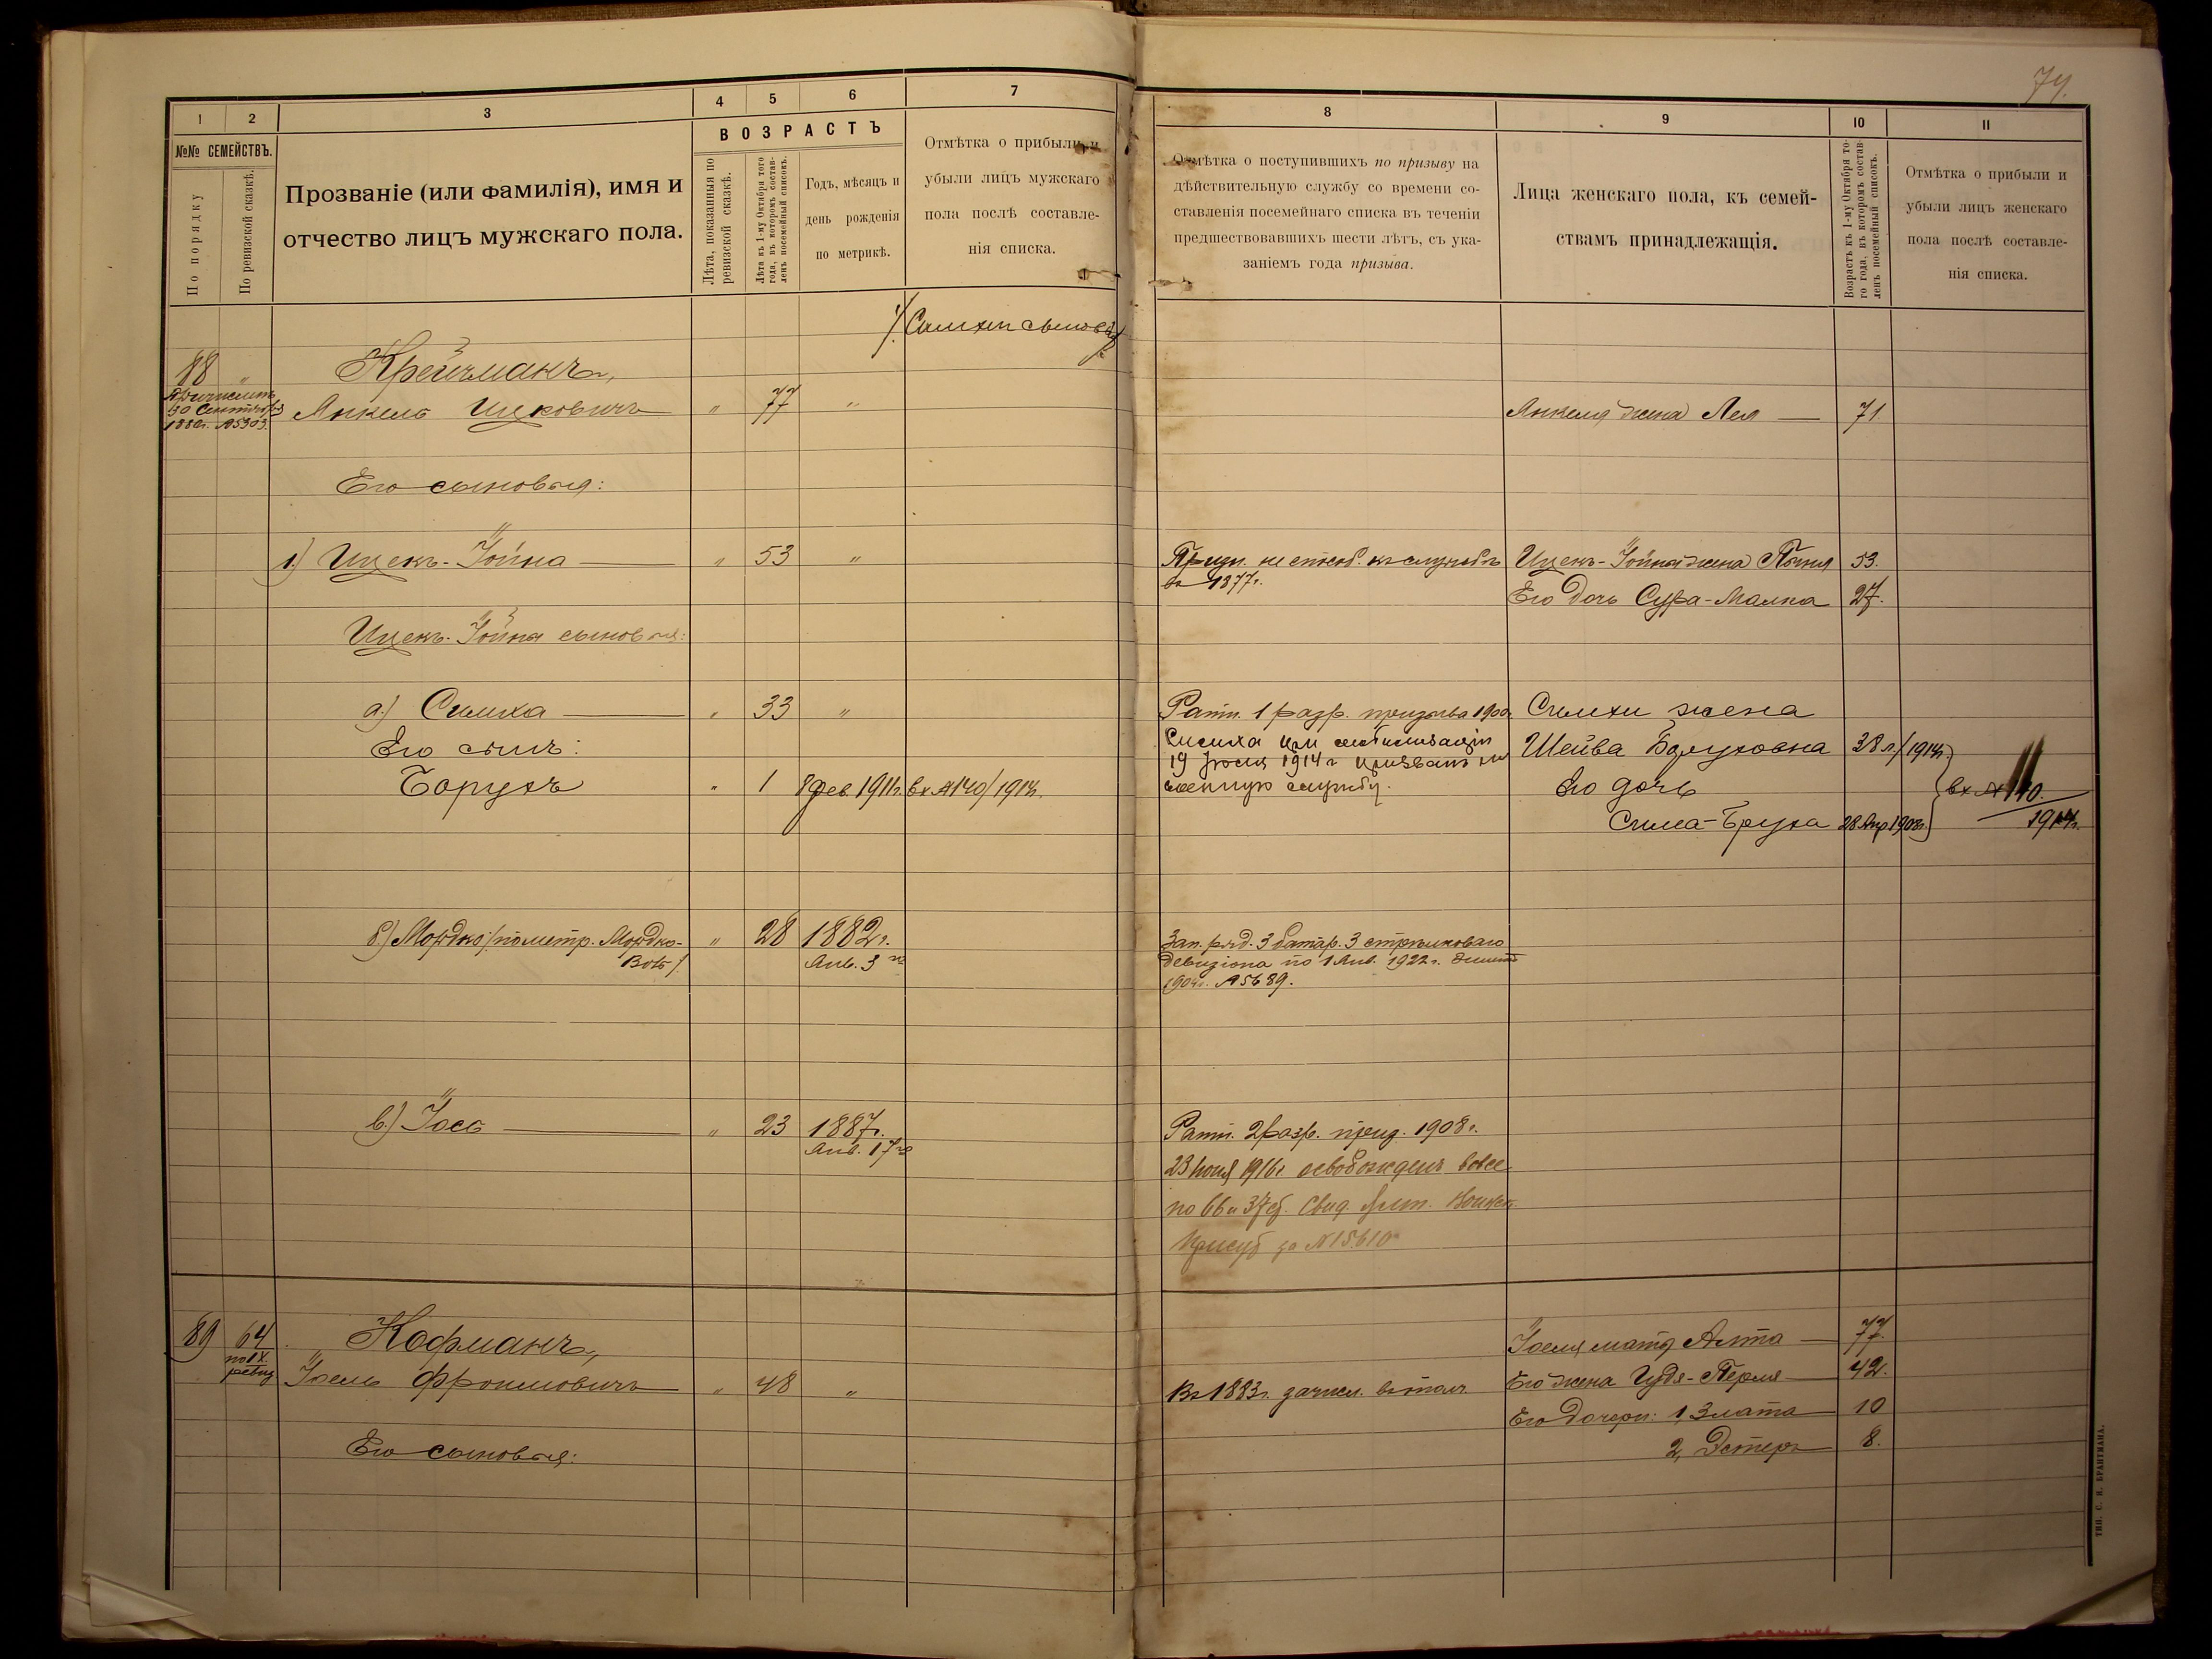 74.
1
2
3
4
5
6
7
№№ СЕМЕЙСТВЪ.
По порядку
По ревизской сказкѣ.
Прозваніе (или фамилія), имя и
отчество лицъ мужскаго пола.
ВОЗРАСТЪ
Лѣта, показанныя по
ревизской сказкѣ.
Лѣта къ 1-му Октября того
года, въ которомъ состав-
ленъ посемейный списокъ.
Годъ, мѣсяцъ и
день рожденія
по метрикѣ.
Отмѣтка о прибыли и
убыли лицъ мужскаго
пола послѣ составле-
нія списка.
8
9
10
11
Отмѣтка о поступившихъ по призыву на
дѣйствительную службу со времени со-
ставленія посемейнаго списка въ теченіи
предшествовавшихъ шести лѣтъ, съ ука-
заніемъ года призыва.
Лица женскаго пола, къ семей-
ствамъ принадлежащія.
Возрастъ къ 1-му Октября то-
го года, въ которомъ состав-
ленъ посемейный списокъ.
Отмѣтка о прибыли и
убыли лицъ женскаго
пола послѣ составле-
нія списка.
88 „ Крейчманъ,
Причислитъ
30 Сентября
188 г. №5303.
Янкель Ицковичъ „ 77 „
Янкеля жена Лея 71
Его сыновья:
1.) Ицекъ-Іойна „ 53 „
Призн. не способ. къ службѣ
въ 1877г.
Ицекъ-Іойны жена 53.
Его дочь Сура-Малка 27.
Ицекъ-Іойна сыновья:
а.) Симха „ 33 „
Ратн. 1 разр. призыва 1900г.
Симхи жена
Его сынъ:
Симха при мобилизаціи
19 Іюля 1914г призванъ на
военную службу.
Шейва Боруховна 28 л./1914г.
Борухъ „ 1 8 фев. 1911г. вх №140/1914г.
Его дочь
вх № 140.
1914г.
Сима-Бруха 28 Апр 1908г.
б) Мордко /: по метр. Мордко-
„ 28 1882г.
Янв. 3го
Зап. ряд. 3 батар. 3 стрѣлковаго
дивизіона по 1 Янв. 1922г. билетъ
190 г. №5689.
в.) Іось „ 23 1887г.
Янв. 17го
Ратн. 2 разр. приз. 1908г.
23 Іюня 1916г. освобожденъ вовсе
по 66 и 37 Свид.
Присут за №15610
89 64
по IX.
ревиз
Кофманъ,
Іоель Фроимовичъ „ 48 „
Въ 1883г. зачисл. въ опол.
Іоеля мать Алта 77.
Его жена Гудя-Перля 42.
Его дочери: 1, Злата 10
2, Эстеръ 8.
Его сыновья:
ТИП. С. Н. БРАНТМАНА.